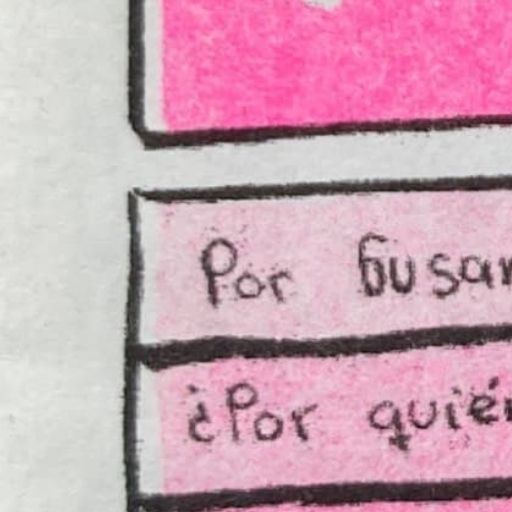 Por Gusan
¿Por quién